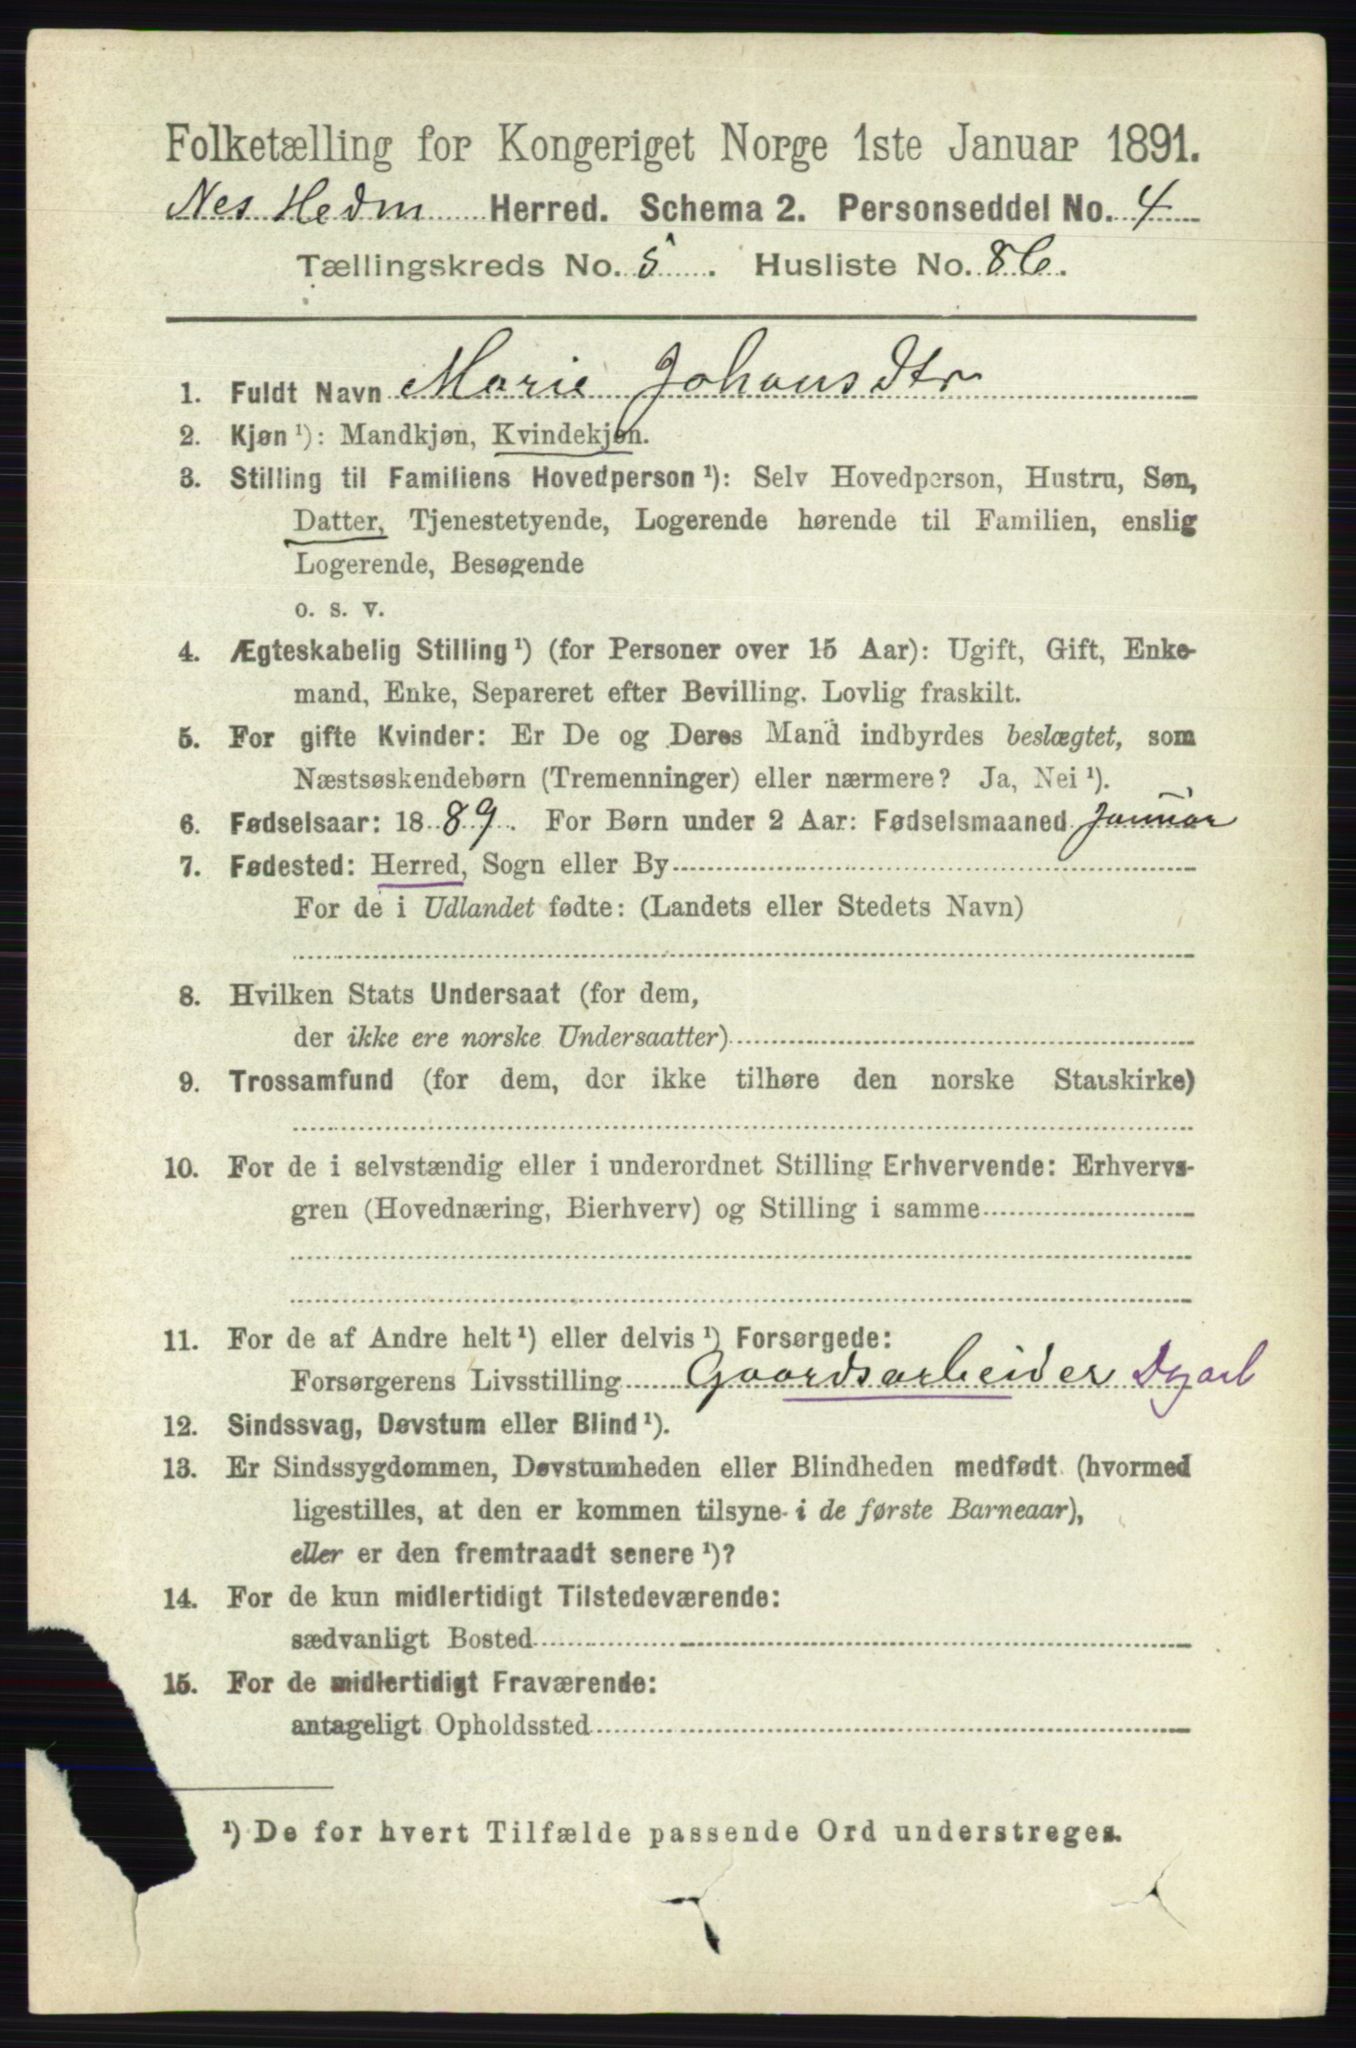 Folketælling for Kongeriget Norge 1ste Januar 1891.
Nes Hedm Herred. Schema 2. Personseddel No. 4
Tællingskreds No. 5. Husliste No. 86.
1. Fuldt Navn Marie Johansdtr
2. Kjøn ¹): Mandkjøn, Kvindekjøn.
3. Stilling til Familiens Hovedperson ¹): Selv Hovedperson, Hustru, Søn,
Datter, Tjenestetyende, Logerende hørende til Familien, enslig
Logerende, Besøgende
o. s. v.
4. Ægteskabelig Stilling ¹) (for Personer over 15 Aar): Ugift, Gift, Enke-
mand, Enke, Separeret efter Bevilling. Lovlig fraskilt.
5. For gifte Kvinder: Er De og Deres Mand indbyrdes beslægtet, som
Næstsøskendebørn (Tremenninger) eller nærmere? Ja, Nei ¹).
6. Fødselsaar: 1889. For Børn under 2 Aar: Fødselsmaaned Januar
7. Fødested: Herred, Sogn eller By
For de i Udlandet fødte: (Landets eller Stedets Navn)
8. Hvilken Stats Undersaat (for dem,
der ikke ere norske Undersaatter)
9. Trossamfund (for dem, der ikke tilhøre den norske Statskirke)
10. For de i selvstændig eller i underordnet Stilling Erhvervende: Erhvervs-
gren (Hovednæring, Bierhverv) og Stilling i samme
11. For de af Andre helt ¹) eller delvis ¹) Forsørgede:
Forsørgerens Livsstilling Gaardsarbeider Dgarb
12. Sindssvag, Døvstum eller Blind ¹).
13. Er Sindssygdommen, Døvstumheden eller Blindheden medfødt (hvormed
ligestilles, at den er kommen tilsyne i de første Barneaar),
eller er den fremtraadt senere ¹)?
14. For de kun midlertidigt Tilstedeværende:
sædvanligt Bosted
15. For de midlertidigt Fraværende:
antageligt Opholdssted
¹) De for hvert Tilfælde passende Ord understreges.